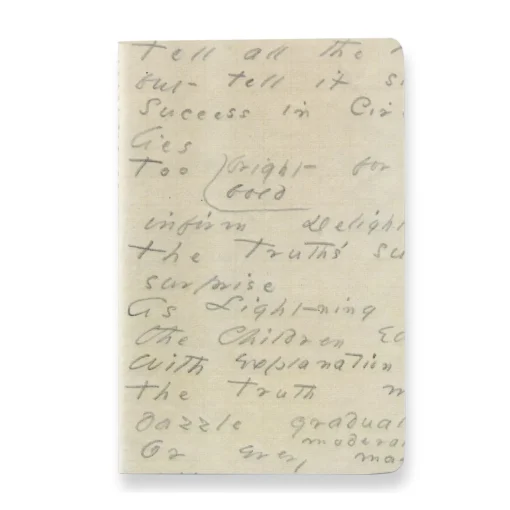 Tell all the
but tell it
Success in Cir
Lies
Too bright for
bold
infirm Delight
the Truth's su
surprise
As Lightning
the Children Ea
With explanation
the Truth m
Dazzle gradual
moderat
Or every ma